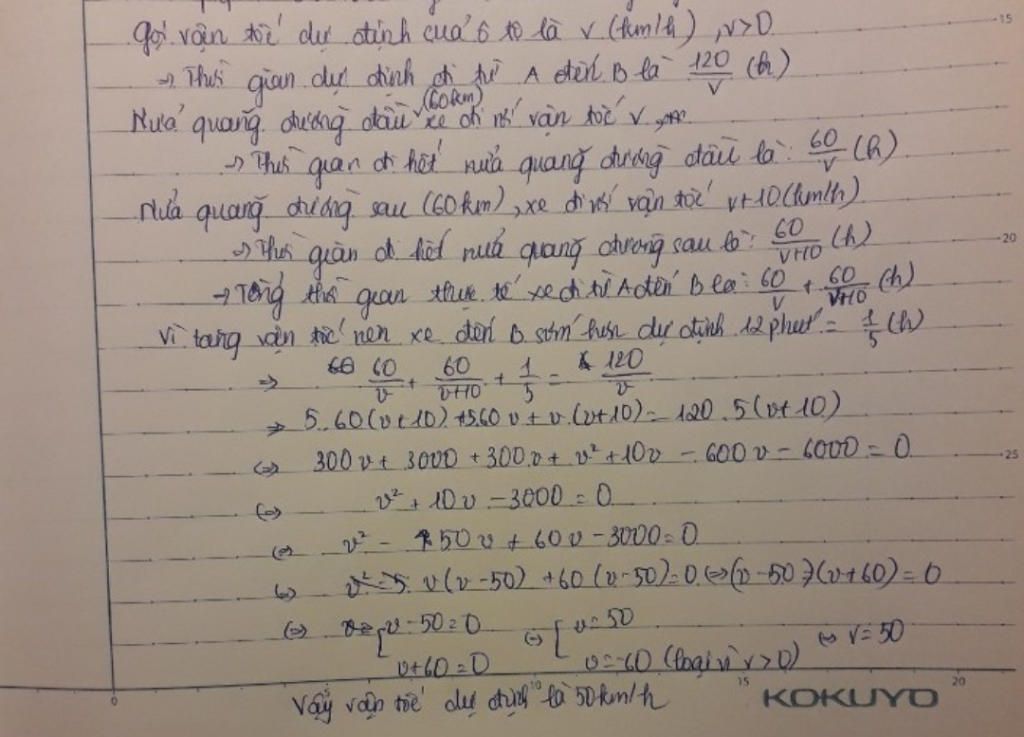 Gọi vận tốc dự định của ô tô là v (km/h), v>0
→ Thời gian dự định đi từ A đến B là 120/v (h)
Nửa quãng đường đầu (60km) xe đi với vận tốc v
→ Thời gian đi hết nửa quãng đường đầu là: 60/v (h)
Nửa quãng đường sau (60km), xe đi với vận tốc v+10 (km/h)
→ Thời gian đi hết nửa quãng đường sau là: 60/(v+10) (h)
→ Tổng thời gian thực tế xe đi từ A đến B là: 60/v + 60/(v+10) (h)
Vì tăng vận tốc nên xe đến B sớm hơn dự định 12 phút = 1/5 (h)
⇒ 60/v + 60/(v+10) + 1/5 = 120/v
⇒ 5.60(v+10) + 5.60v + v.(v+10) = 120.5(v+10)
⇔ 300v + 3000 + 300v + v² + 10v - 600v - 6000 = 0
⇔ v² + 10v - 3000 = 0
⇔ v² - 50v + 60v - 3000 = 0
⇔ v(v-50) + 60(v-50) = 0 ⇔ (v-50)(v+60) = 0
⇔ [ v-50=0 ⇔ [ v=50
v+60=0 v=-60 (loại vì v>0) ⇔ v=50
Vậy vận tốc dự định là 50km/h
KOKUYO
0 10 15 20
15
20
25